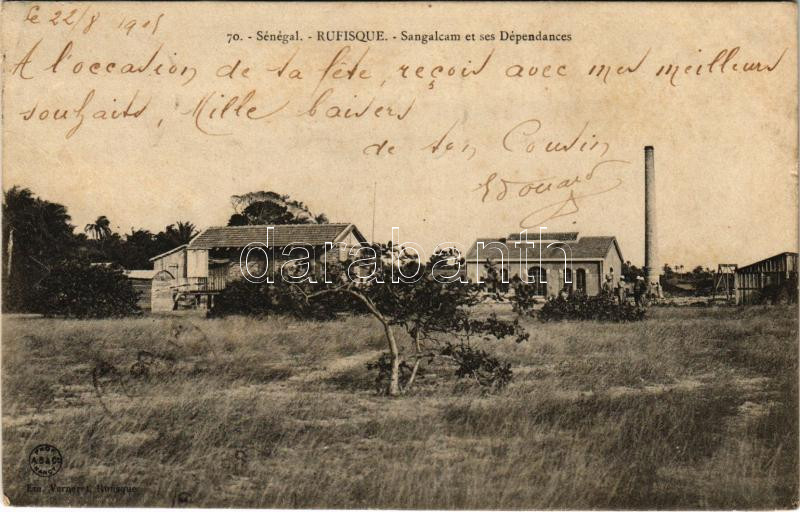 le 22/8 1905
70. - Sénégal. - RUFISQUE. - Sangalcam et ses Dépendances
A l'occasion de ta fête, reçois avec mes meilleurs
souhaits, Mille baisers
de ton Cousin
Edouard
darabanth
PHOT
A.B & Co
NANCY
Em. Verneret, Rufisque